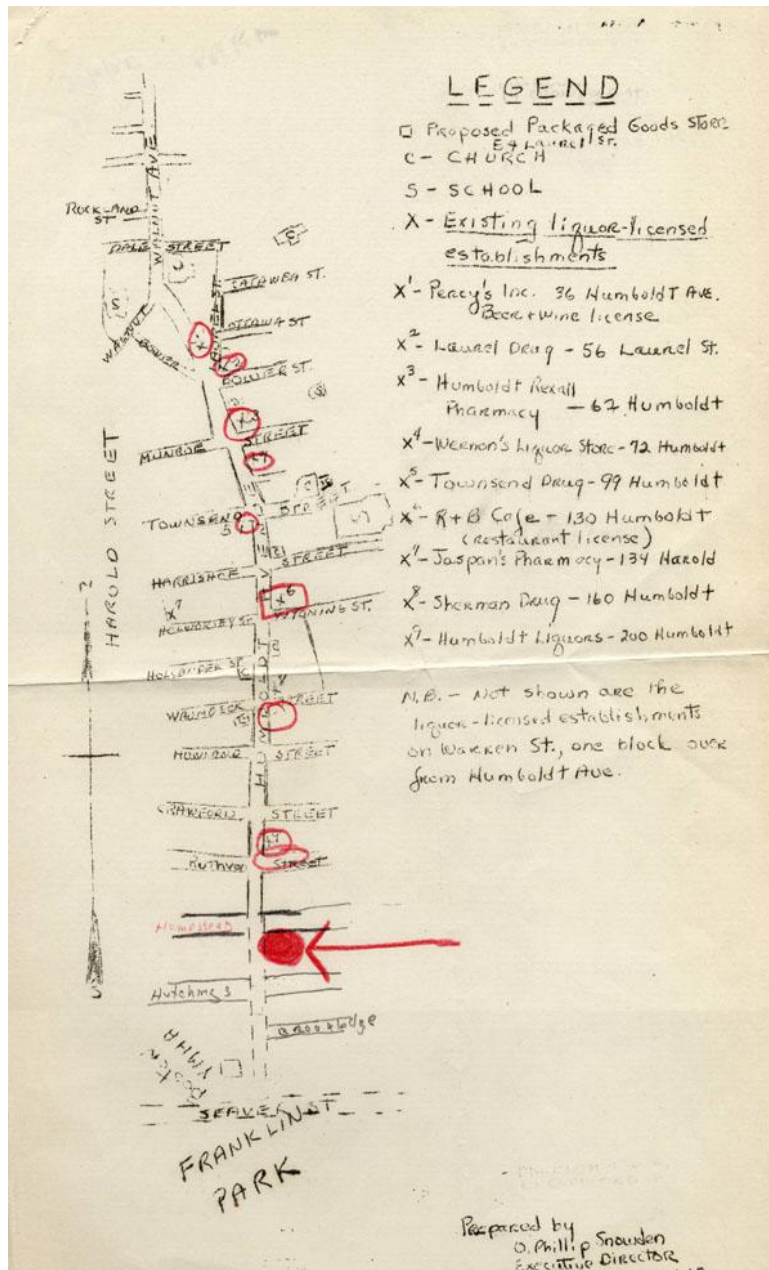 LEGEND
□ Proposed Packaged Goods Store
E4 Laurel St.
C - CHURCH
S - SCHOOL
X - Existing liquor-licensed
establishments
X1 - Percy's Inc. 36 Humboldt Ave.
Beer + wine license
X2 - Laurel Drug - 56 Laurel St.
X3 - Humboldt Rexall
Pharmacy - 62 Humboldt
X4 - Wernon's Liquor Store - 72 Humboldt
X5 - Townsend Drug - 99 Humboldt
X6 - R+B Cafe - 130 Humboldt
(restaurant license)
X7 - Jaspan's Pharmacy - 134 Harold
X8 - Sherman Drug - 160 Humboldt
X9 - Humboldt Liquors - 200 Humboldt
N.B. - Not shown are the
liquor-licensed establishments
on Warren St., one block over
from Humboldt Ave.
WALNUT AVE
ROCKLAND
ST
DALE STREET
C
C
S
CATAWBA ST.
OTTAWA ST
WALNUT
BOWER
BOWER ST.
S
X3
MUNROE STREET
X4
HAROLD STREET
C
TOWNSEND STREET
5
S
HARRISHOF STREET
X7
X6
HOLWORTHY ST
WYOMING ST.
HOLLANDER ST
HUMBOLDT AV
WAUMBECK STREET
HOWLAND STREET
CRAWFORD STREET
Ruthven STREET
Homestead
S
Hutchings
Brookledge
YMHA
SEAVER ST
FRANKLIN
PARK
Prepared by
O. Phillip Snowden
Executive Director